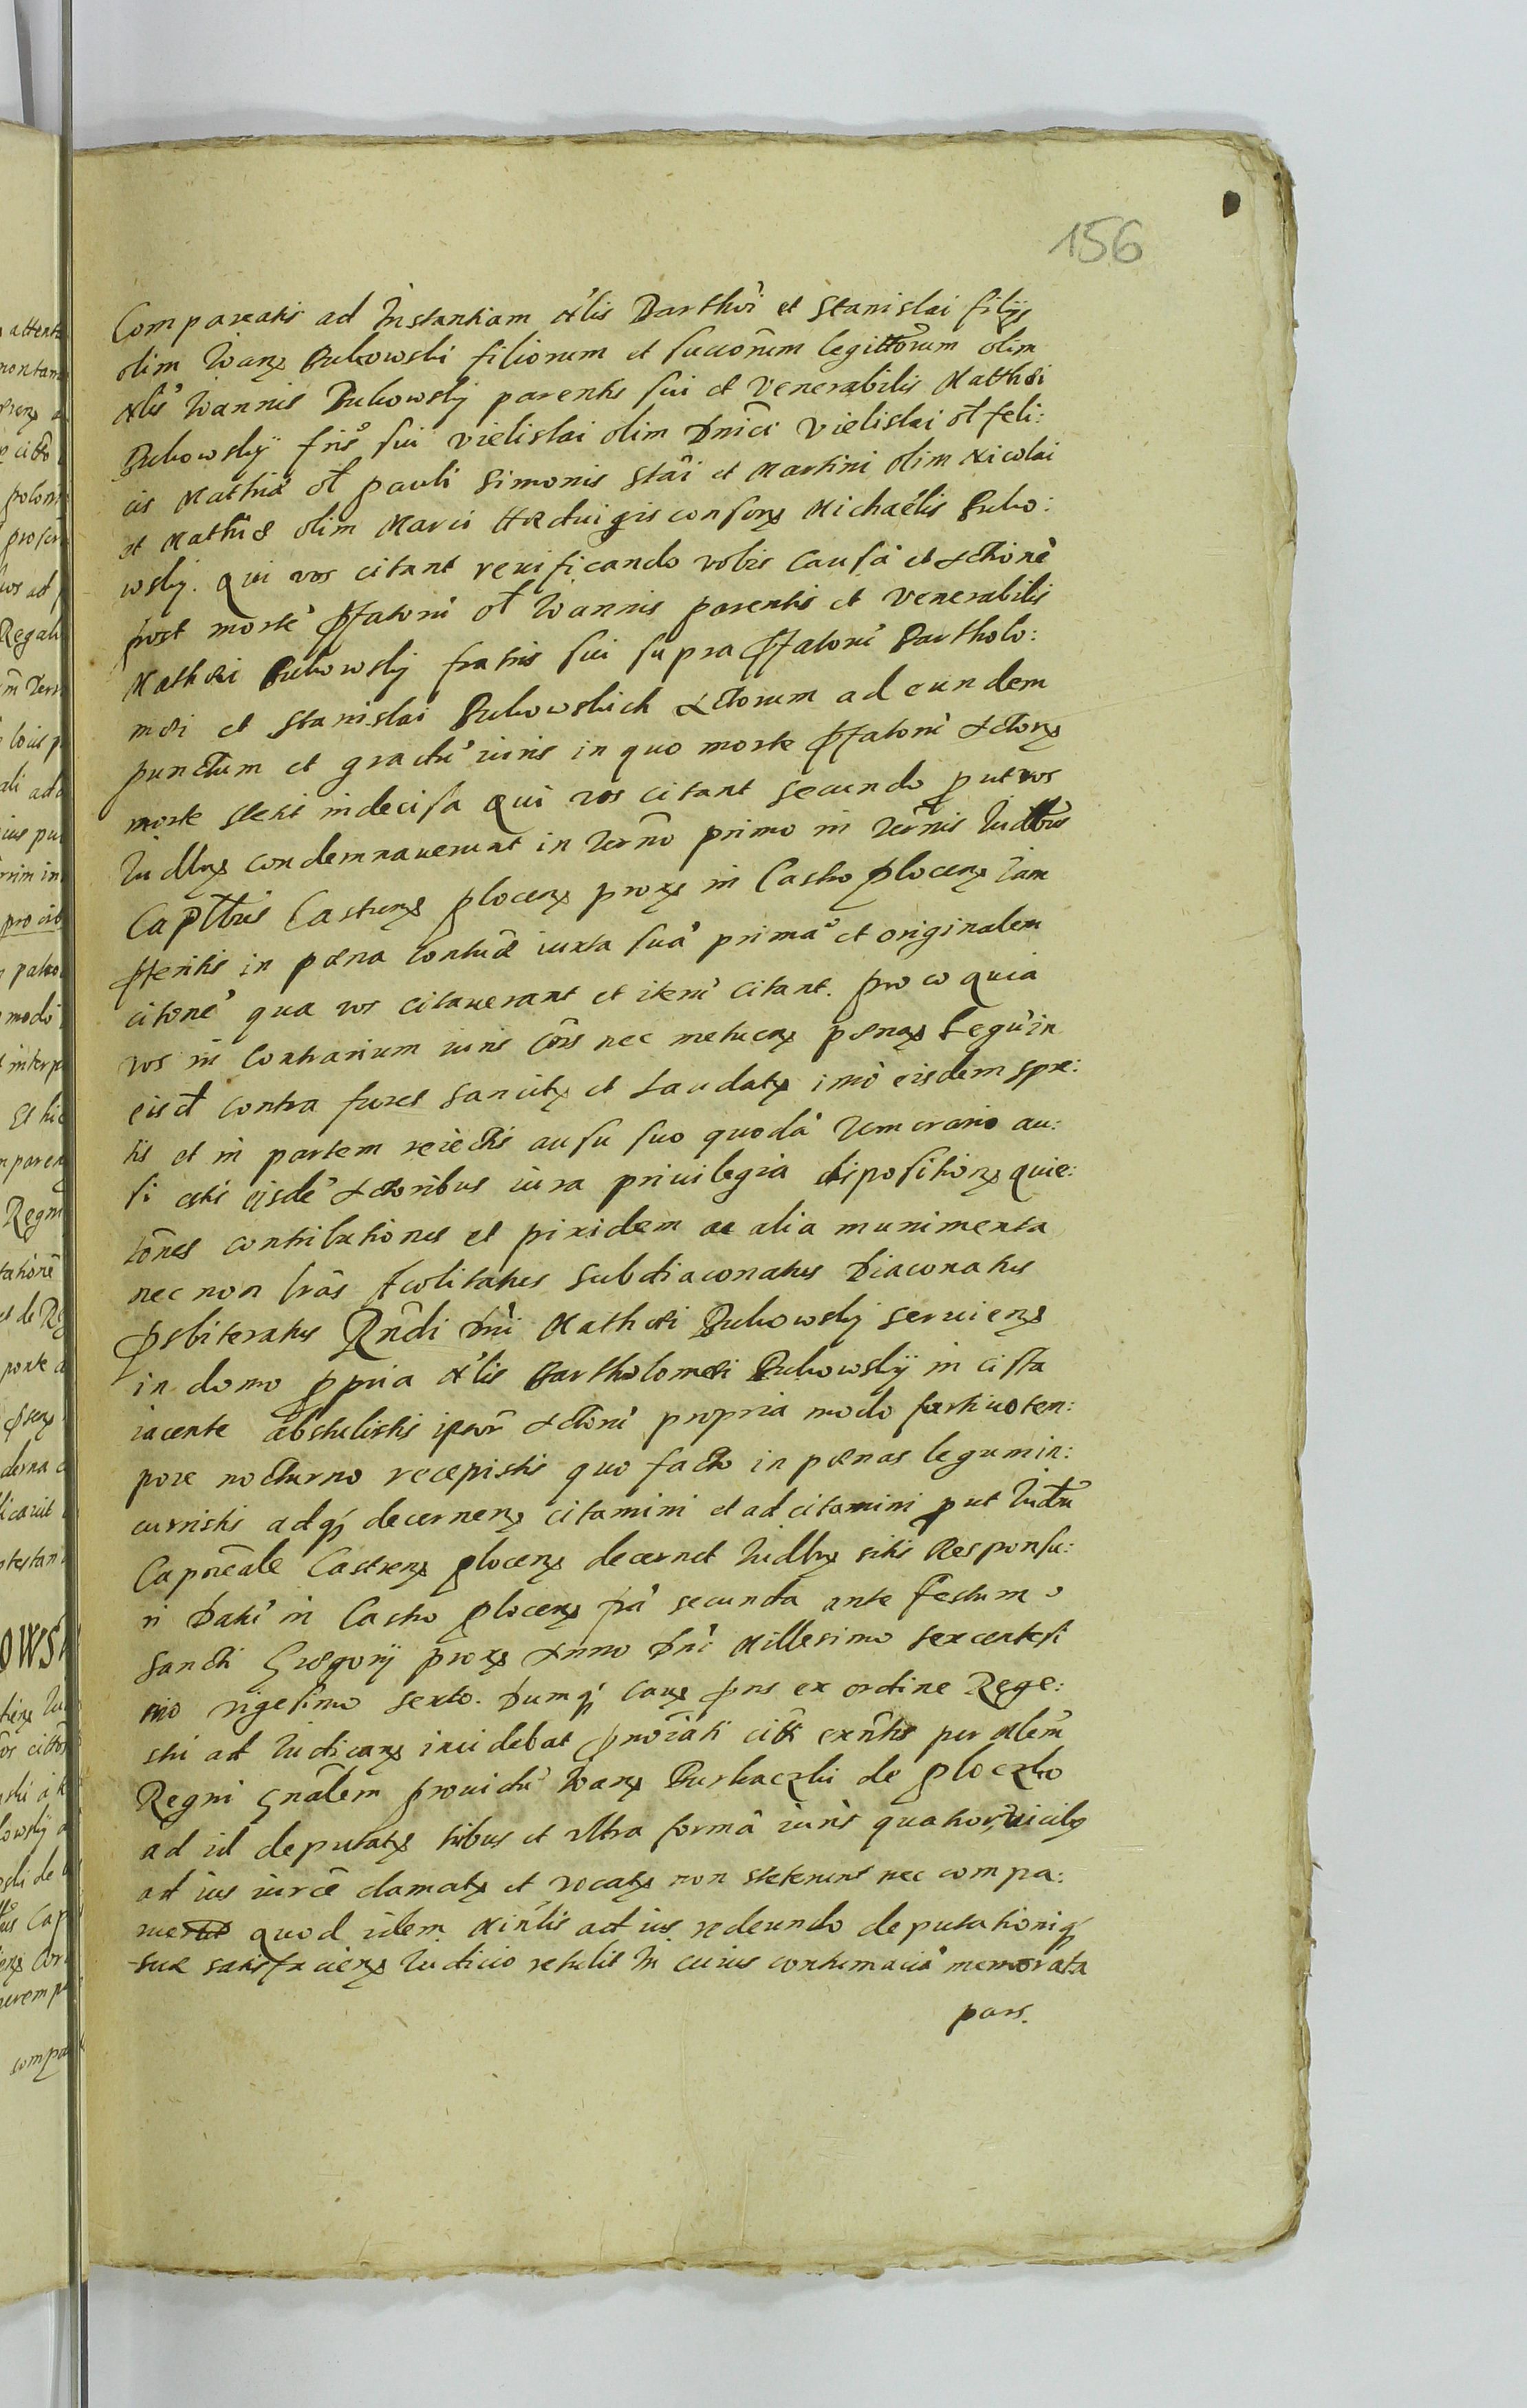 156
Compareatis ad Instantiam Nlis Barthoi et Stanislai filys
olim Ioanȝ Bukowski filiorum et succorum legittorum olim
Nlis Ioannis Bukowsky parentis sui et Venerabilis Matthæi
Bukowskÿ fris sui Vielislai olim Dnici Vielislai ol feli:
cis Mathiæ ol Pauli Simonis Stai et Martini olim Nicolai
et Mathiæ olim Marci Hæduigis consorȝ Michaëlis Buko:
wsky. Qui vos citant reuificando vobis causã et Actionẽ
post mortẽ pfatorũ ol Ioannis parentis et Venerabilis
Mathæi Bukowsky fratris sui supra pfatorũ Bartholo:
mæi et Stanislai Bukowskich Actorum ad eundem
punctum et gradũ iuris in quo morte pfatorũ Actorȝ
morte stetit indecisa Qui vos citant secundo put vos
Iudlrȝ condemnauerunt in Terno primo in Ternis Iudlbus
Capitlbus Castrenȝ Plocenȝ proxȝ in Castro Plocenȝ iam
pteritis in pæna contuæ iuxta suã primã et originalem
citonẽ qua vos citauerant et iterũ citant. Pro eo quia
vos in contrarium iuris cois nec metuenȝ pænaȝ Legũ in
eisd contra fures sancitȝ et Laudatȝ imò eisdem spre:
tis et in partem reiectis ausu suo quodã temerario au:
si estis ejsdẽ Actoribus iura priuilegia dispositionȝ quie:
tones contributiones et pixidem ac alia munimenta
nec non lras Acolitatus Subdiaconatus Diaconatus
Psbiteratus Rndi Dni Mathæi Bukowsky seruienȝ
in domo ppria Nlis Bartholomæi Bukowskÿ in cista
iacente abstulistis ipsor Actorũ propria modo furtiuo tem:
pore nocturno recepistis quo facto in pænas legum in:
curristis adqȝ decernenȝ citamini et ad citamini put Iudm
Capneale Castrenȝ Plocenȝ decernet Iudlrȝ sitis Responsu:
ri Datũ in Castro Plocenȝ fã secunda ante Festum
Sancti Grægorÿ proxȝ Anno Dni Millesimo sexcentesi
mo vigesimo sexto. Dumqȝ cauȝ pns ex ordine Rege:
stri ad Iudicanȝ incidebat pnoiati citti exntis per Mlem
Regni Gnalem prouidũ Ioanȝ Burkaczki de Ploczko
ad id deputatȝ tribus et vltra formã iuris quatuor vicibȝ
ad ius iurce clamatȝ et vocatȝ non steterunt nec compa:
rue quod idem Minlis ad ius redeundo deputationiqȝ
suæ satisfacienȝ Iudicio retulit In cuius contumaciã memorata
pars.